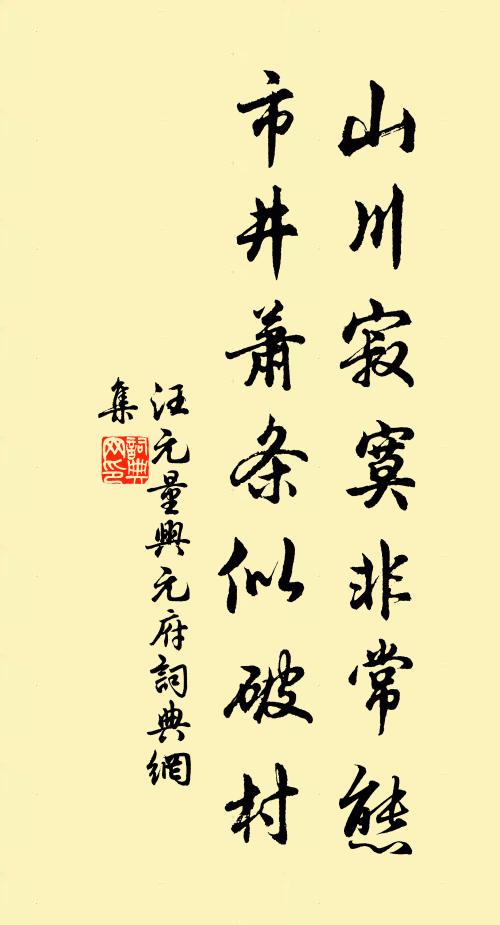 山川寂寞非常態
市井蕭条似破村
汪元量興元府詞典網
集
詞典
网印